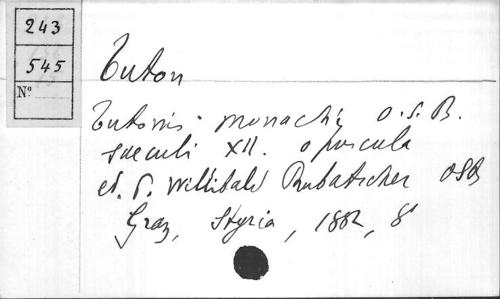 243
545
Nº
Tuton
Tutonis monachi O.S.B.
saeculi XII. opuscula
ed. P. Willibald Rubatscher OSB
Graz, Styria, 1882, 8°